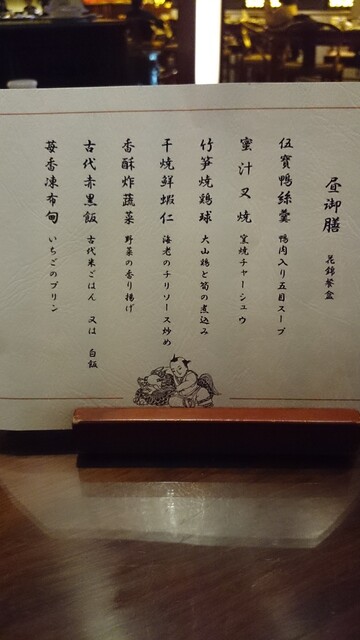 昼御膳 花錦餐盒
伍寶鴨絲羹 鴨肉入り五目スープ
蜜汁叉焼 窯焼チャーシュウ
竹笋焼鶏球 大山鶏と筍の煮込み
干焼鮮蝦仁 海老のチリソース炒め
香酥炸蔬菜 野菜の香り揚げ
古代赤黒飯 古代米ごはん 又は 白飯
苺香凍布甸 いちごのプリン